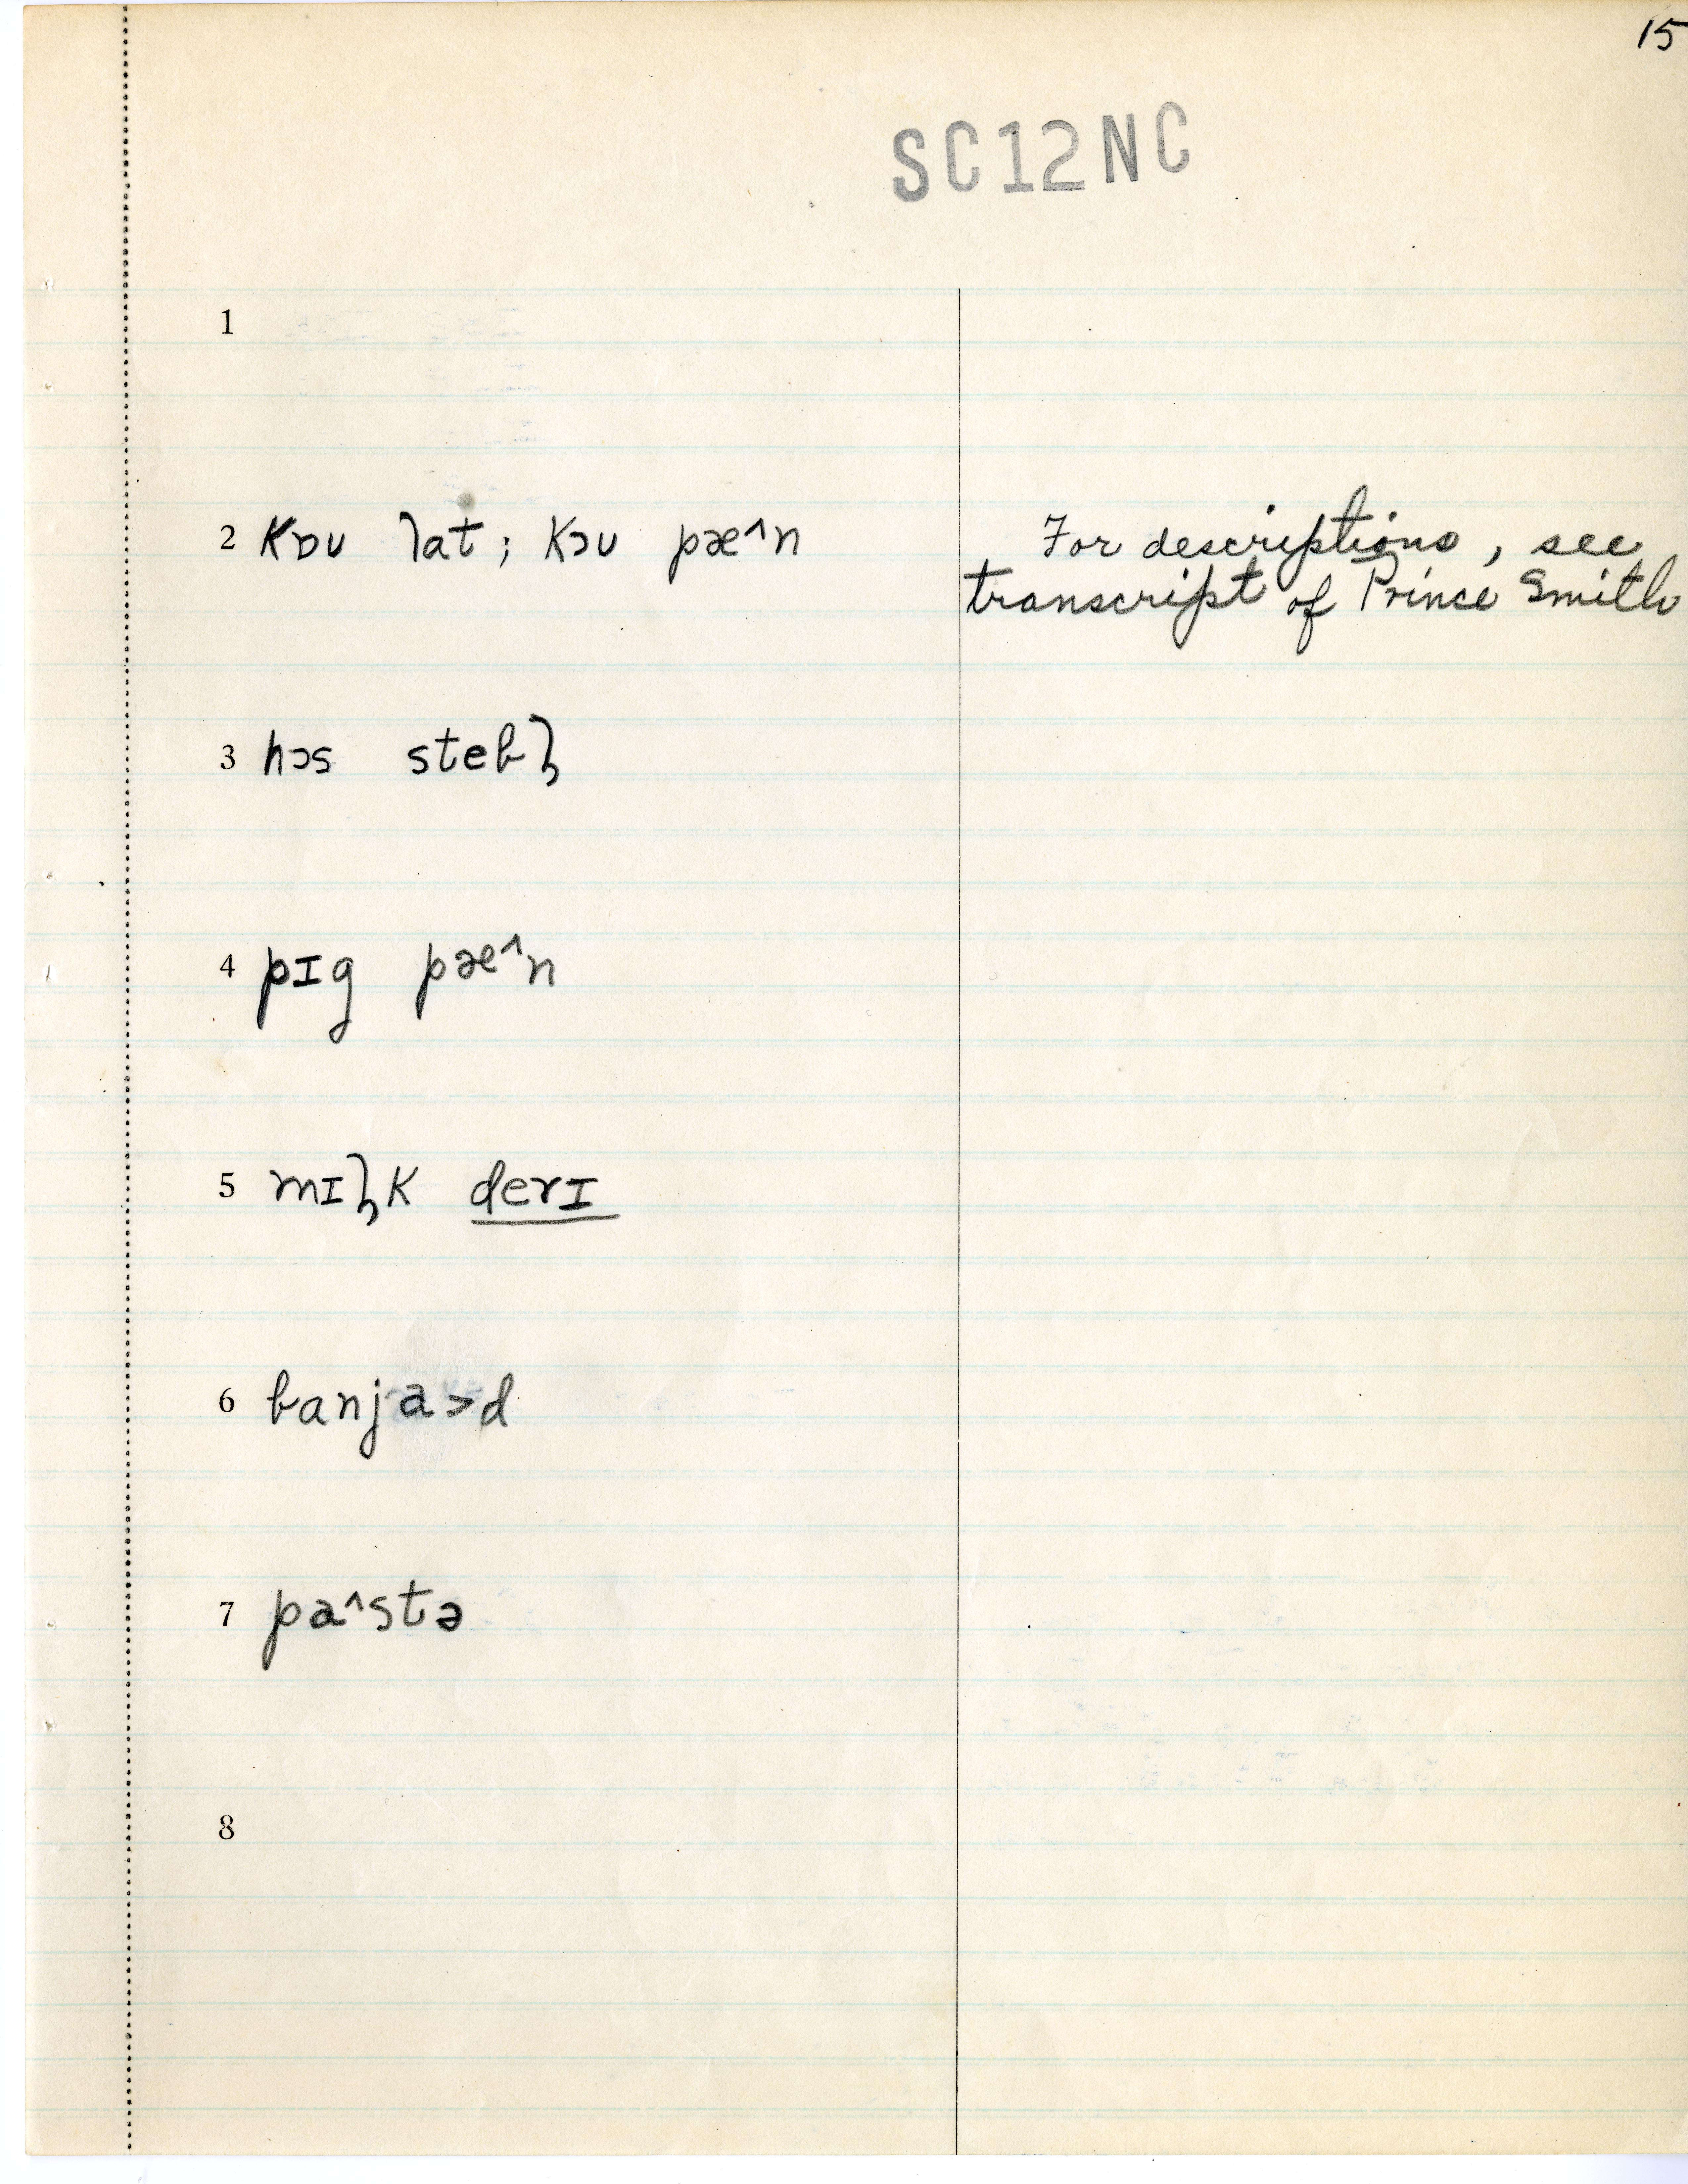 15
SC12NC
1
2 kɒʊ lat; kɔʊ pæ^n
For descriptions, see
transcript of Prince Smith
3 hɔs stebl̩
4 pɪg pæ^n
5 mɪl̩k derɪ
6 banja>d
7 pa^stə
8